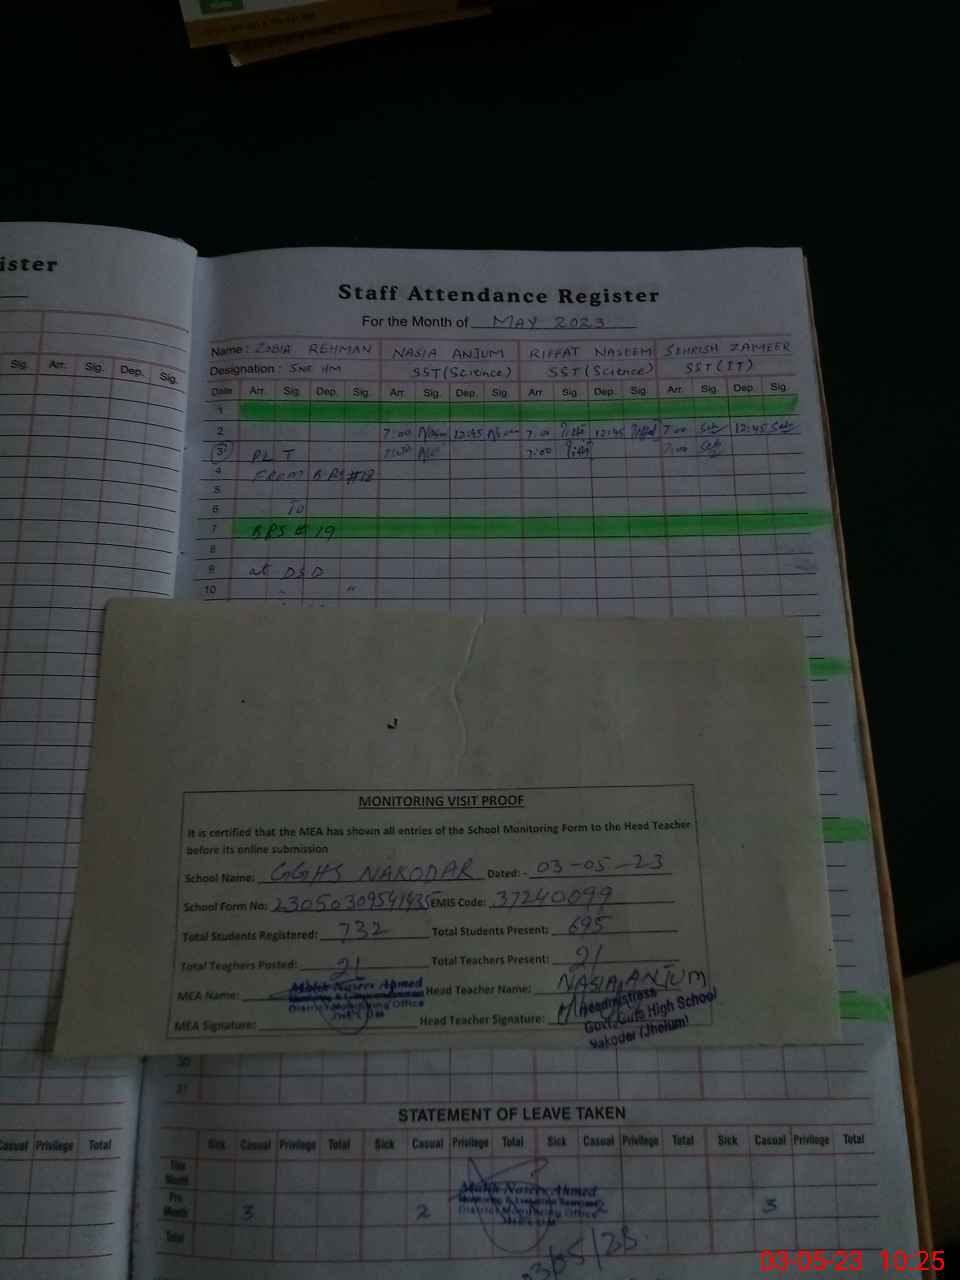 ister
Staff Attendance Register
For the Month of MAY 2023
Name: ZOBIA REHMAN NASIA ANJUM RIFFAT NASEEM SEHRISH ZAMEER
Designation: SNR HM SST(Science) SST(Science) SST(IT)
Sig. Arr. Sig. Dep. Sig.
Date Arr. Sig. Dep. Sig. Arr. Sig. Dep. Sig. Arr. Sig. Dep. Sig. Arr. Sig. Dep. Sig.
1
2 7:00 12:45 7:00 12:45 7:00 12:45
3 7:00 7:00
4 FROM BPS #18
5
6 To
7 BPS # 19
8
9 at DSD
10
MONITORING VISIT PROOF
It is certified that the MEA has shown all entries of the School Monitoring Form to the Head Teacher
before its online submission
School Name: GGHS NAKODAR Dated: - 03-05-23
School Form No: EMIS Code: 37240099
Total Students Registered: 732 Total Students Present: 695
Total Teachers Posted: 21 Total Teachers Present: 21
MEA Name: Malik Naseer Ahmed Head Teacher Name: NASIA ANJUM
District Monitoring Office
MEA Signature: Head Teacher Signature:
Headmistress
Govt. Girls High School
Nakodar (Jhelum)
30
31
STATEMENT OF LEAVE TAKEN
Casual Privilege Total Sick Casual Privilege Total Sick Casual Privilege Total Sick Casual Privilege Total Sick Casual Privilege Total
This Month
Pre. Month 3 2 3
Total
Malik Naseer Ahmed
District Monitoring Office
03-05-23 10:25